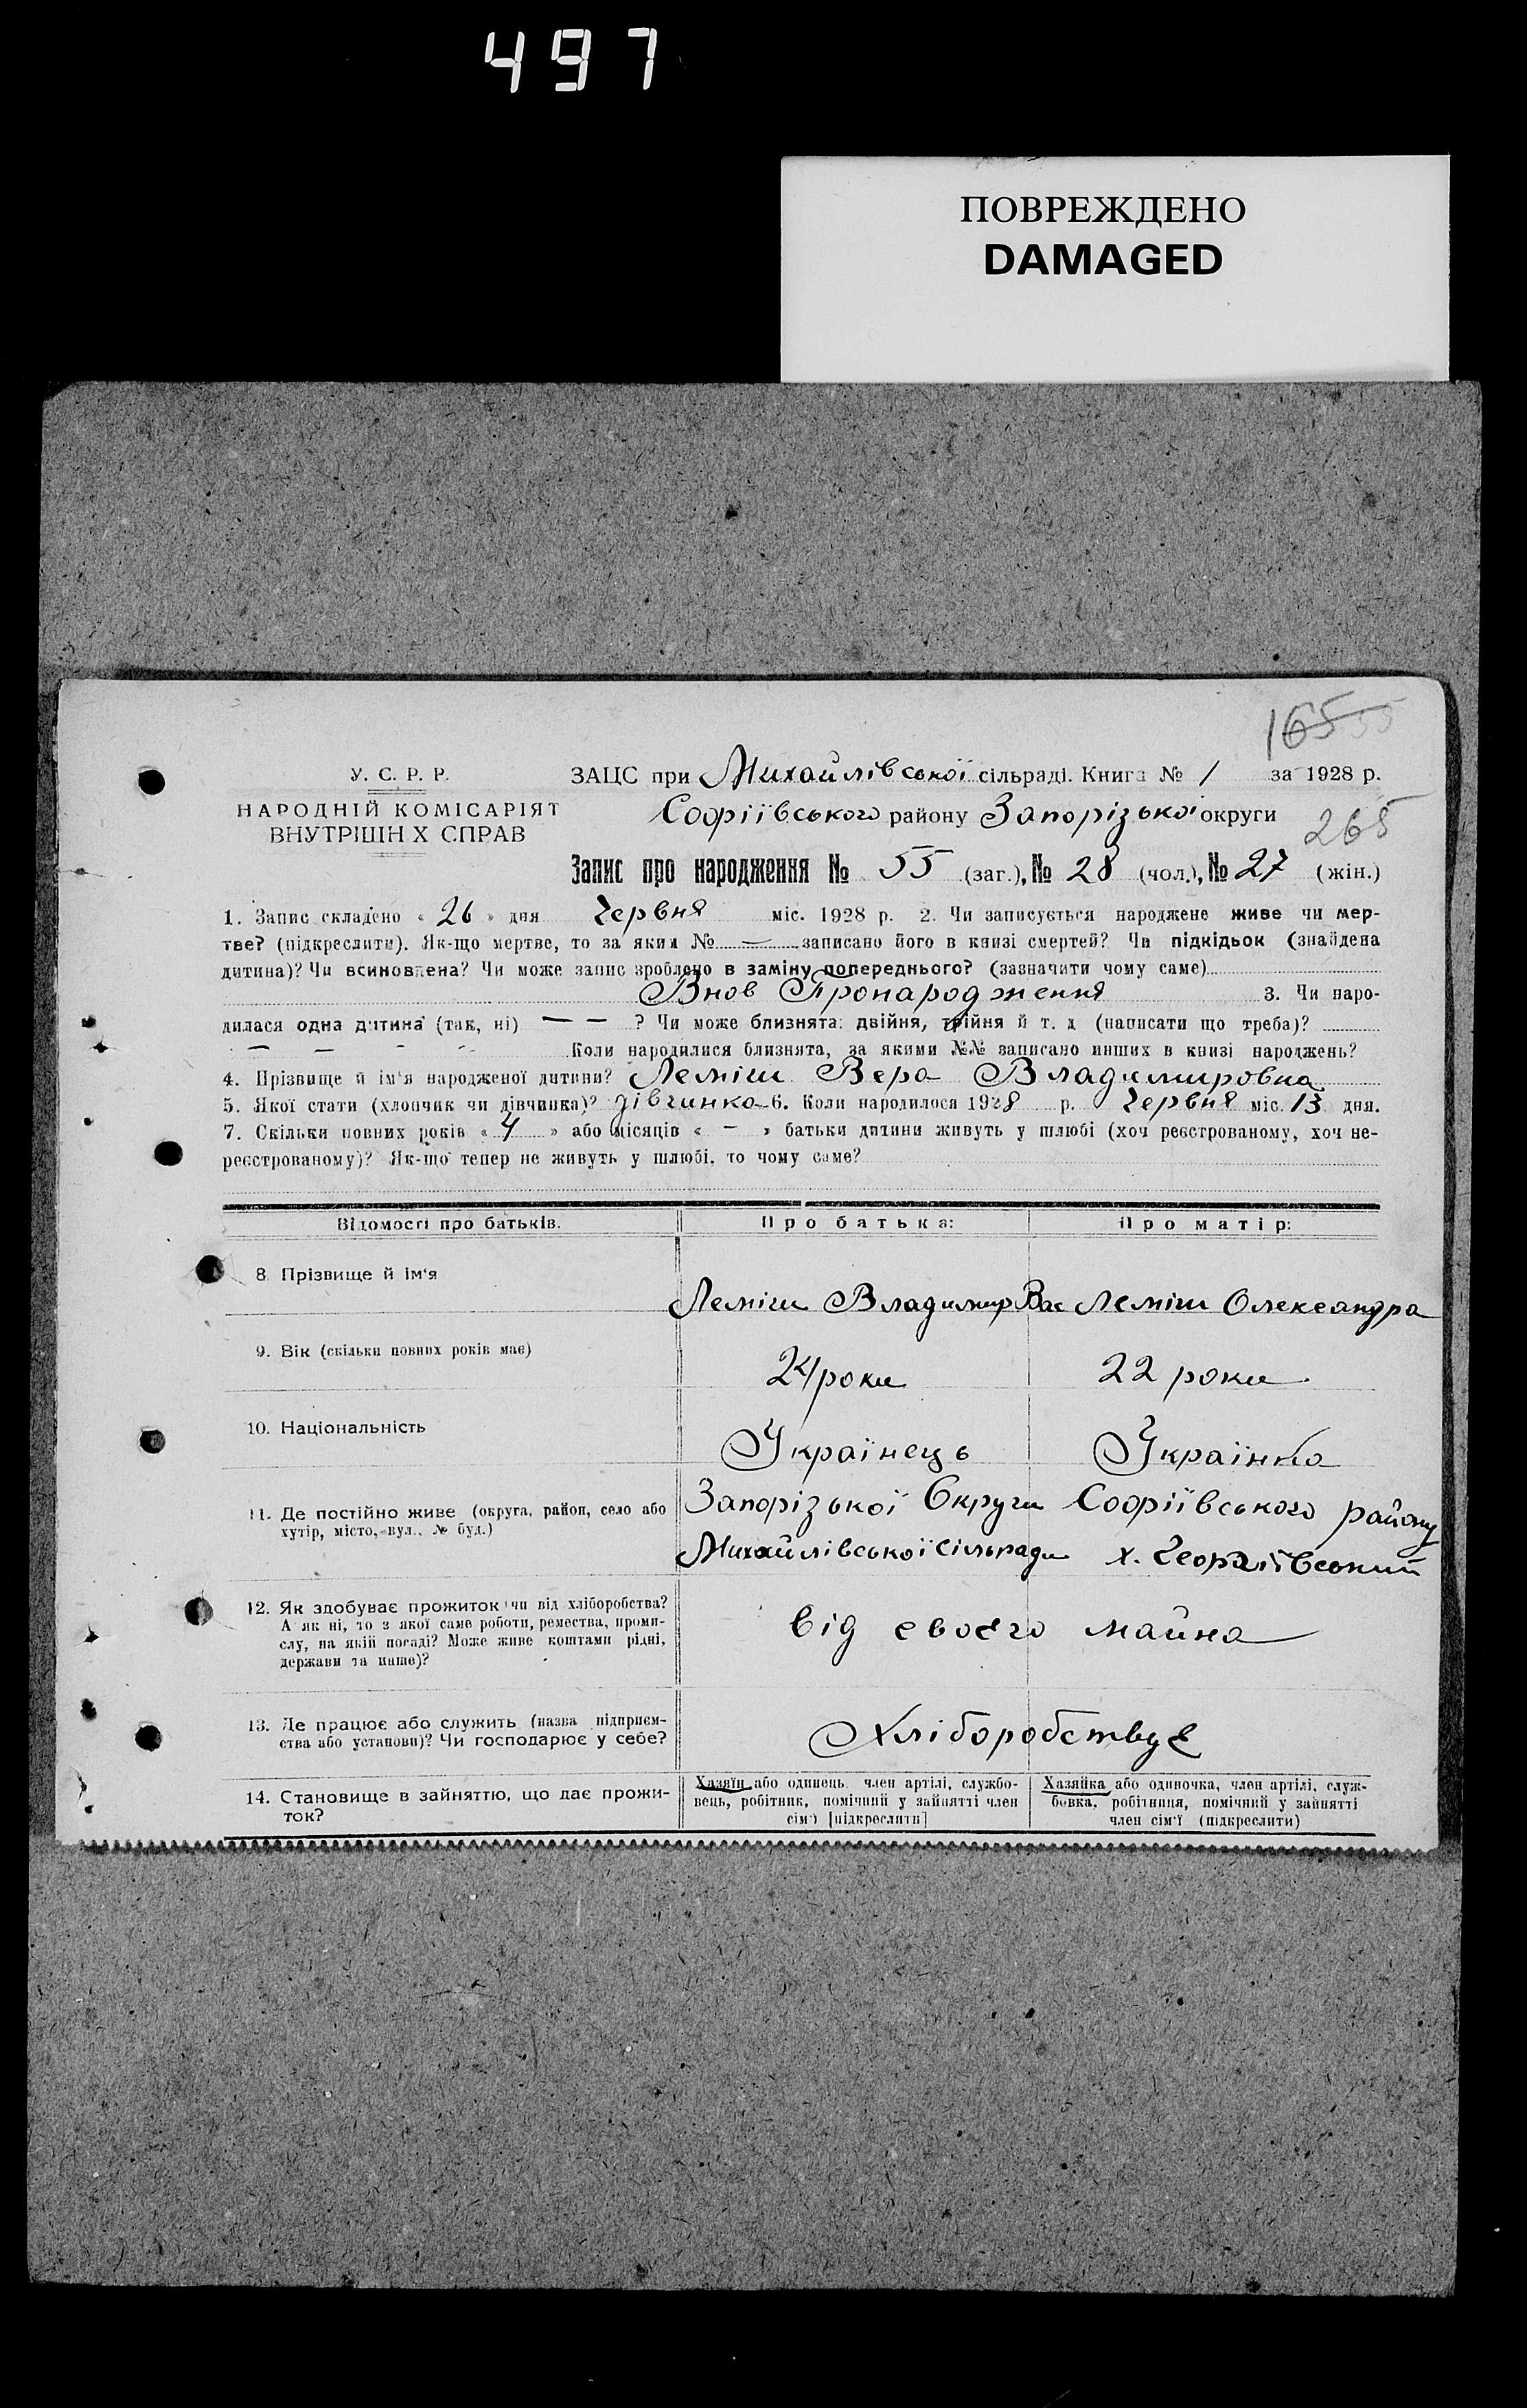 497
ПОВРЕЖДЕНО
DAMAGED
165 55
У. С. Р. Р. ЗАЦС при Михайлівської сільраді. Книга № 1 за 1928 р.
НАРОДНІЙ КОМІСАРІЯТ Софріївського району Запорізької округи 265
ВНУТРІШН Х СПРАВ
Запис про народження № 55 (заг.), № 28 (чол.), № 27 (жін.)
1. Запис складено « 26 » дня Червня міс. 1928 р. 2. Чи записується народжене живе чи мер-
тве? (підкреслити). Як-що мертве, то за яким № — записано його в книзі смертей? Чи підкідьок (знайдена
дитина)? Чи всиновлена? Чи може запис зроблено в заміну попереднього? (зазначити чому саме)
Внов Пронародження 3. Чи наро-
дилася одна дитина (так, ні) — — ? Чи може близнята: двійня, трійня й т. д (написати що треба)?
— — - - Коли народилися близнята, за якими №№ записано инших в книзі народжень?
4. Прізвище й ім'я народженої дитини? Леміш Вера Владимировна
5. Якої статі (хлопчик чи дівчинка)? дівчинка 6. Коли народилося 1928 р. Червня міс. 13 дня.
7. Скільки повних років « 4 » або місяців « – » батьки дитини живуть у шлюбі (хоч реєстрованому, хоч не-
реєстрованому)? Як-що тепер не живуть у шлюбі, то чому саме?
Відомості про батьків. Про батька: Про матір:
8. Прізвище й ім'я
Леміш Владимир Вас Леміш Олександра
9. Вік (скільки повних років має)
24 роки 22 роки
10. Національність
Українець Українка
11. Де постійно живе (округа, район, село або
хутір, місто, вул., № буд.)
Запорізької Округи Софріївського району
Михайлівської сільради х.
12. Як здобуває прожиток чи від хліборобства?
А як ні, то з якої саме роботи, ремества, проми-
слу, на якій посаді? Може живе коштами рідні,
держави та инше)?
від своєго майна
13. Де працює або служить (назва підприєм-
ства або установи)? Чи господарює у себе?
Хліборобствує
14. Становище в зайняттю, що дає прожи-
ток?
Хазяїн або одинець, член артілі, службо-
вець, робітник, помічний у зайнятті член
сім'ї [підкреслити]
Хазяйка або одиночка, член артілі, служ-
бовка, робітниця, помічний у зайнятті
член сім'ї (підкреслити)